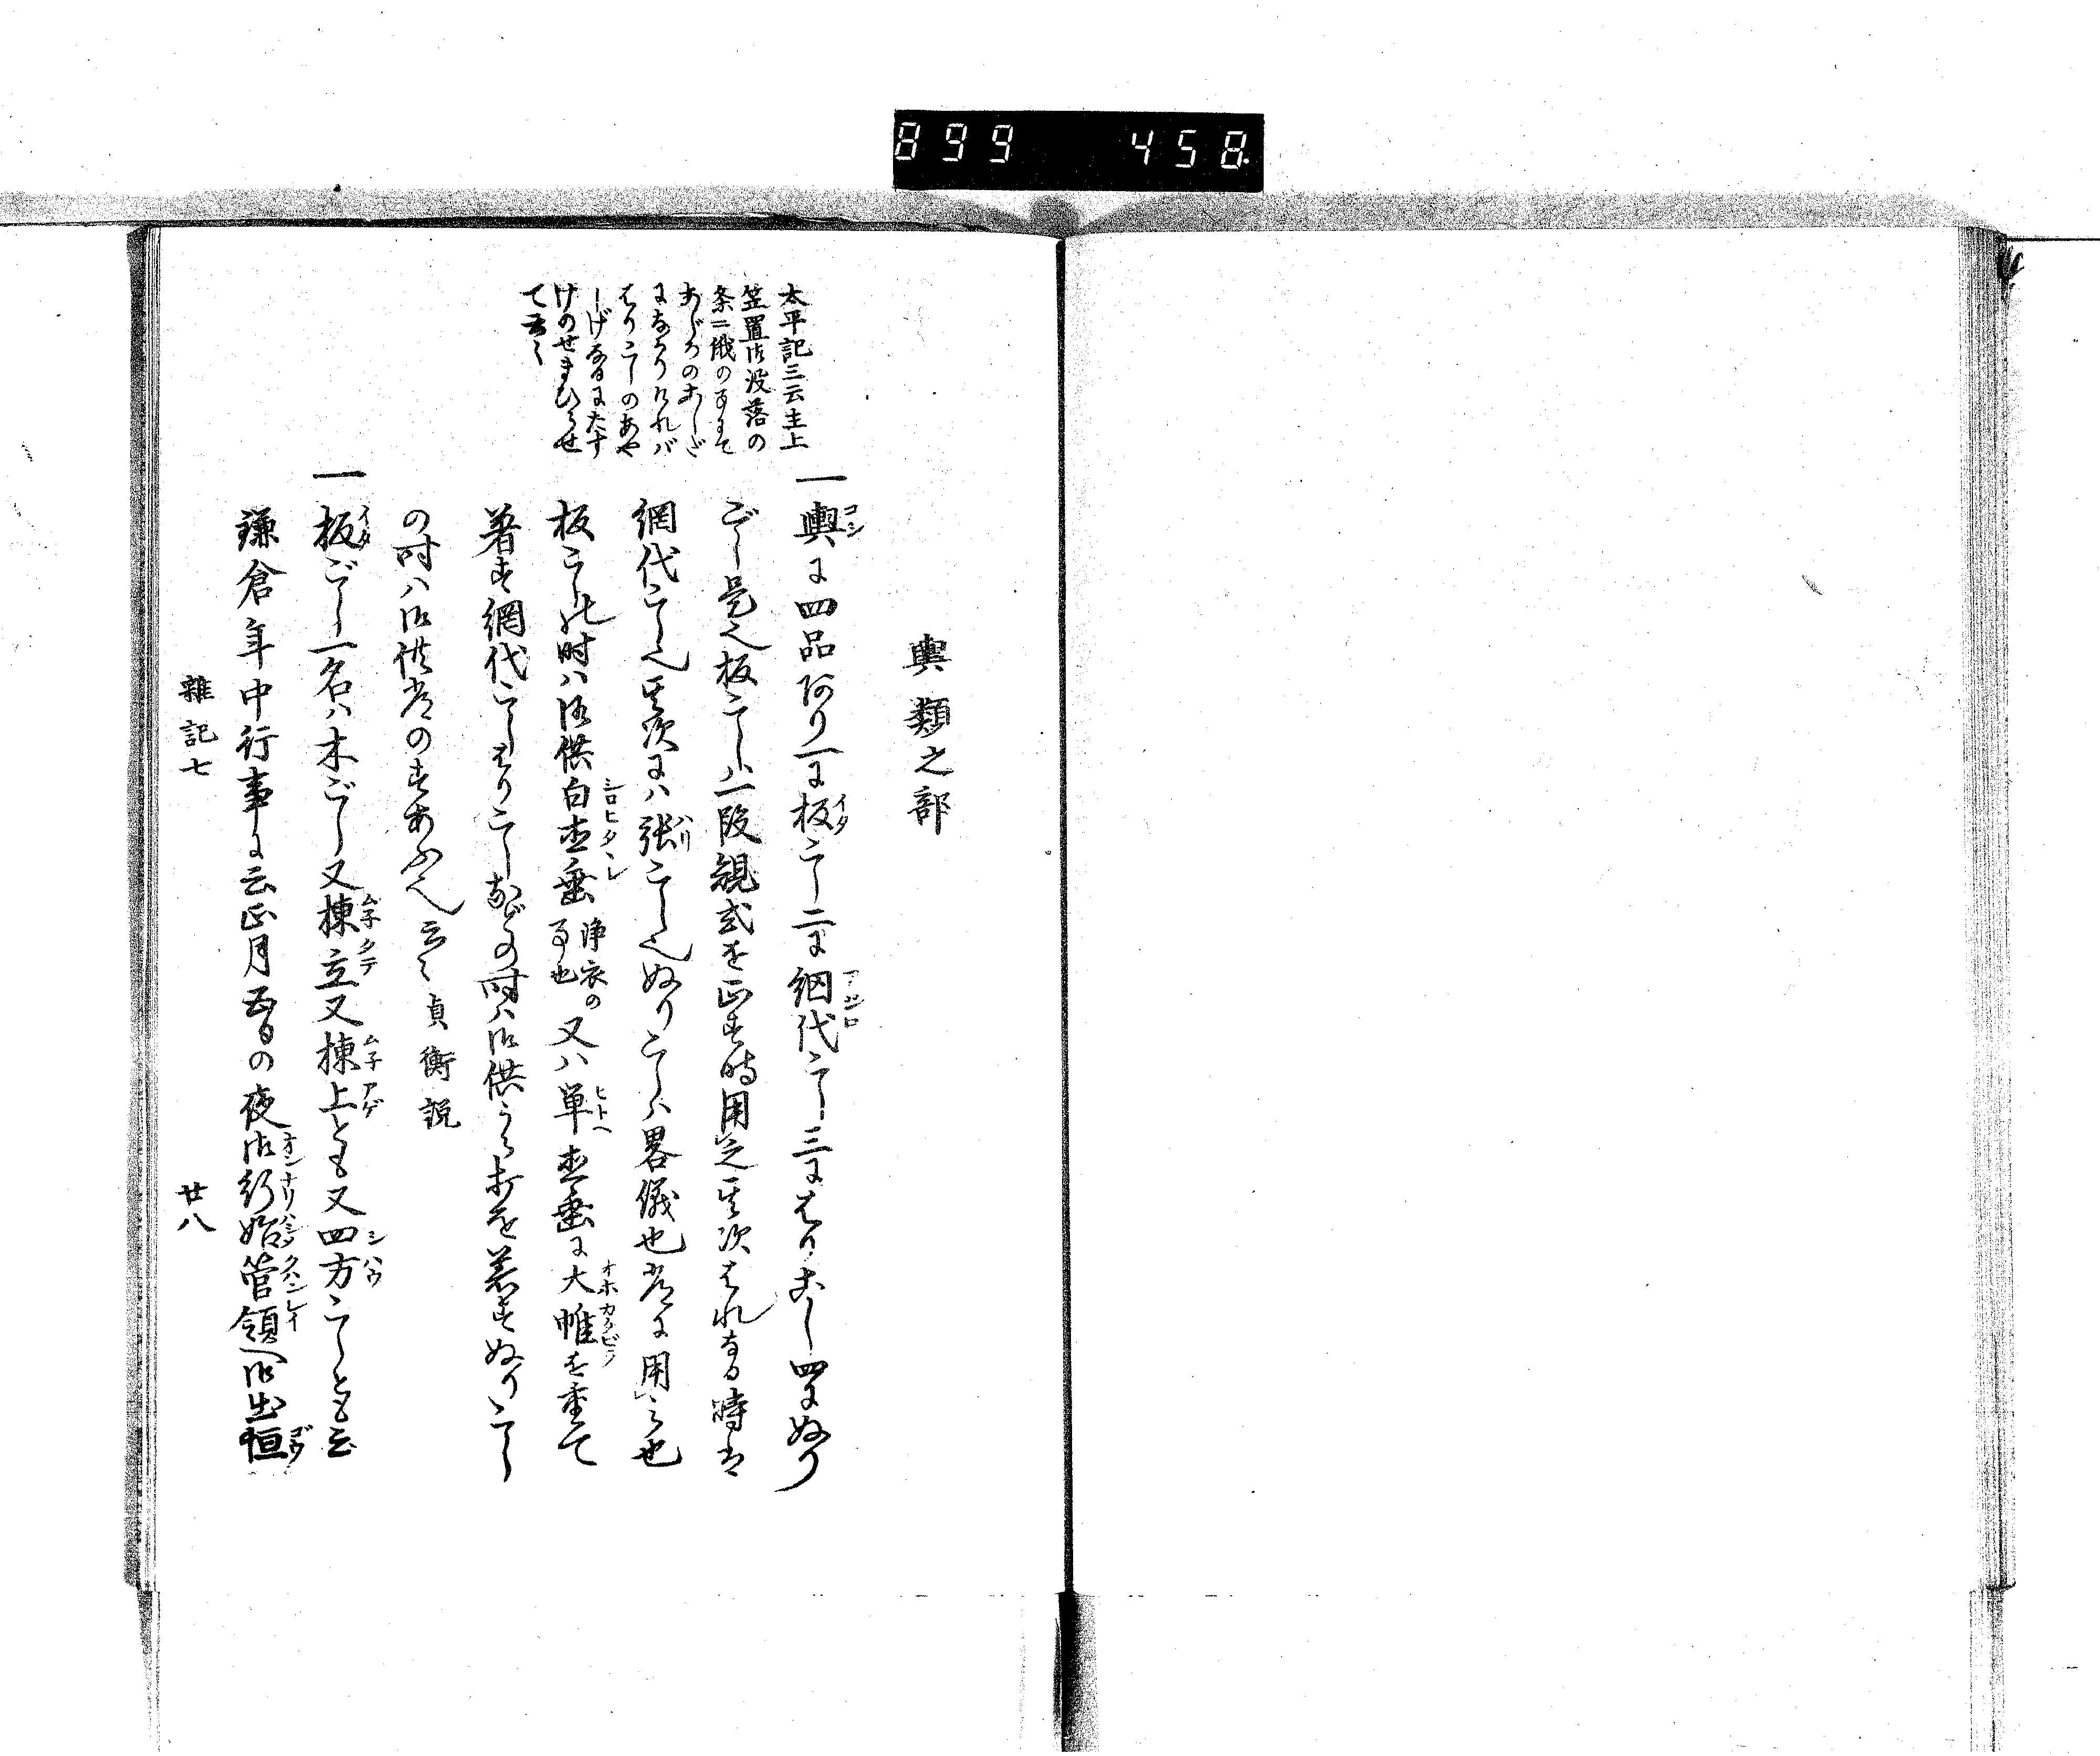 899 458
輿類之部
太平記三云主上
笠置御没落の
条ニ俄の事にて
あじろのこしだ
になかりければ
はりこしのあや
しげなるにたす
けのせまひらせ
て云々
一輿に四品阿り一に板こし二に網代こし三にはりこし四にぬり
ごし是也板こしハ一段規式を正す時用之其次はれなる時は
網代こし也其次にハ張こし也ぬりこしハ畧儀也常に用之也
板こしの時ハ御供白直垂浄衣の事也又ハ単直垂に大帷を重て
著す網代こしはりこしなどの時ハ御供うら打を着すぬりこし
の時ハ御供常のすあふ也云々貞衡説
一板ごし一名ハ木ごし又棟立又棟上とも又四方こしとも云
鎌倉年中行事に云正月五日の夜御行始管領へ御出恒
雑記七
廿八